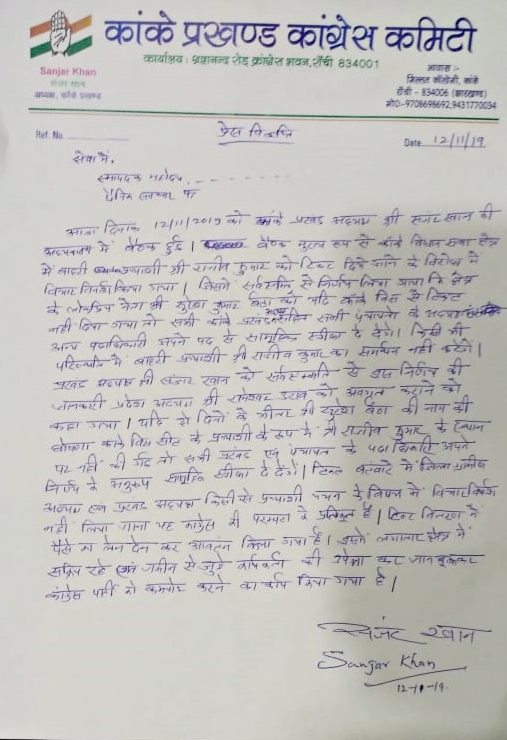 कांके प्रखण्ड कांग्रेस कमिटी
कार्यालय : श्रद्धानन्द रोड, कांग्रेस भवन, राँची 834001
Sanjar Khan
संजर खान
अध्यक्ष, काँके प्रखण्ड
आवास :-
मिल्लत कॉलोनी, कांके
राँची - 834006 (झारखण्ड)
मो०:-9708698692,9431770034
Ref. No.
प्रेस विज्ञप्ति
Date 12/11/19
सेवा में,
सम्पादक महोदय,
दैनिक समाचार पत्र
आज दिनांक 12/11/2019 को कांके प्रखंड अध्यक्ष श्री संजर खान की
अध्यक्षता में बैठक हुई। बैठक मुख्य रूप से कांके विधान सभा क्षेत्र
में बाहरी प्रत्याशी श्री राजीव कुमार को टिकट दिये जाने के विरोध में
विचार विमर्श किया गया। जिसमें सर्वसम्मति से निर्णय लिया गया कि क्षेत्र
के लोकप्रिय नेता श्री सुरेश कुमार बैठा को यदि कांके विस से टिकट
नहीं दिया गया तो सभी कांके प्रखंड सभी पंचायत के अध्यक्ष
अन्य पदाधिकारी अपने पद से सामूहिक स्तीफा दे देंगे। किसी भी
परिस्थिति में बाहरी प्रत्याशी श्री राजीव कुमार का समर्थन नहीं करेंगे।
प्रखंड अध्यक्ष श्री संजर खान को सर्वसम्मति से इस निर्णय की
जानकारी प्रदेश अध्यक्ष श्री रामेश्वर उरांव को अवगत कराने को
कहा गया। यदि दो दिनों के भीतर श्री सुरेश बैठा की नाम की
घोषणा कांके विस सीट के प्रत्याशी के रूप में श्री राजीव कुमार के स्थान
पर नहीं की गई तो सभी प्रखंड एवं पंचायत के पदाधिकारी अपने
निर्णय के अनुरूप सामूहिक स्तीफा दे देंगे। टिकट बंटवारे में जिला ग्रामीण
अध्यक्ष एवं प्रखंड अध्यक्ष किसी से प्रत्याशी चयन के विषय में विचार विमर्श
नहीं लिया जाना यह कांग्रेस की परम्परा के प्रतिकूल है। टिकट वितरण में
पैसे का लेन देन कर आवंटन किया गया है। इसमें लगातार क्षेत्र में
सक्रिय रहे एवं जमीन से जुड़े कार्यकर्ता की उपेक्षा कर जानबूझकर
कांग्रेस पार्टी को कमजोर करने का कार्य किया गया है।
संजर खान
Sanjar Khan
12-11-19.